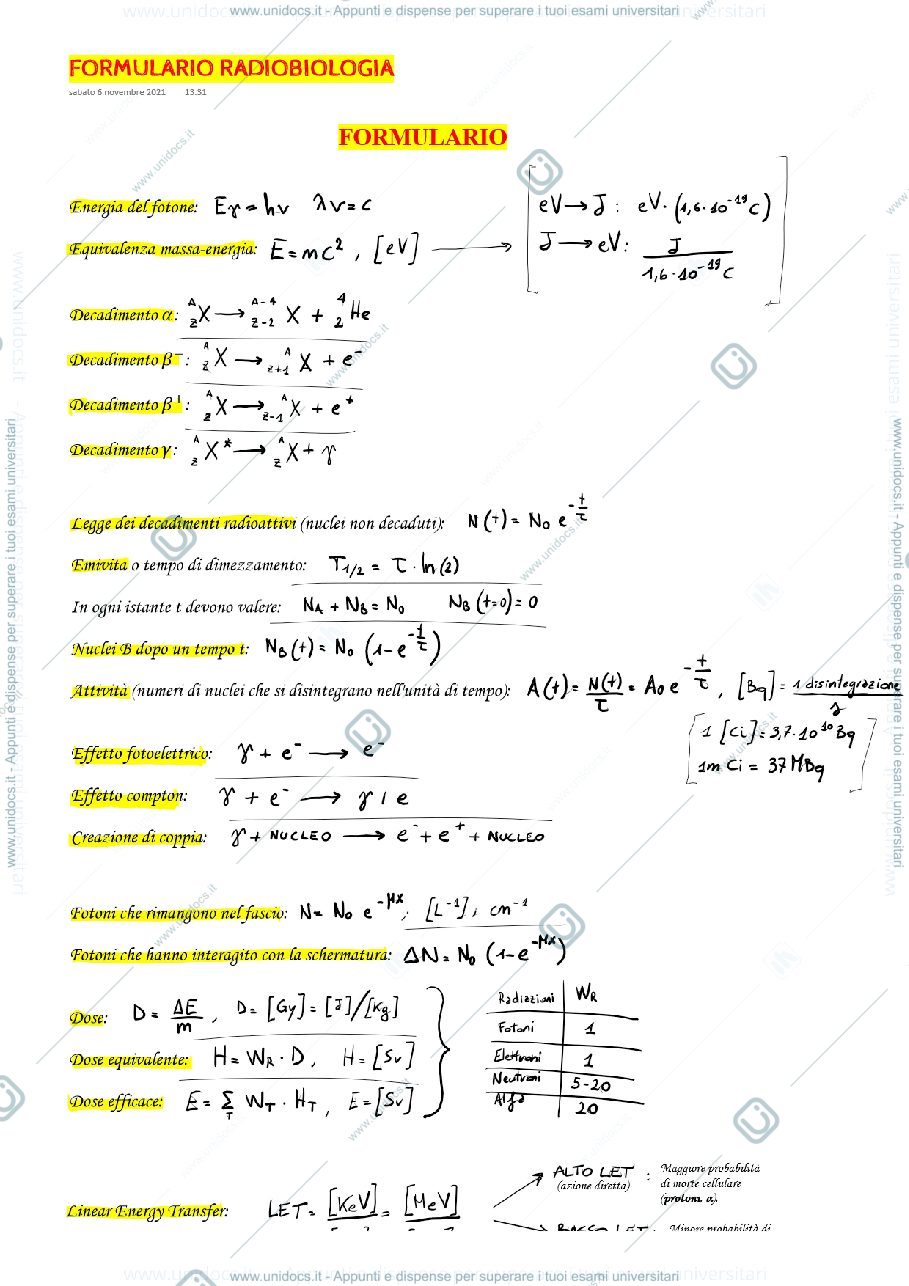 www.unidocs.it - Appunti e dispense per superare i tuoi esami universitari
FORMULARIO RADIOBIOLOGIA
sabato 6 novembre 2021 13:31
FORMULARIO
Energia del fotone: Eγ = hν λν = c
Equivalenza massa-energia: E = mc², [eV] ⟶
[eV → J : eV · (1,6 · 10⁻¹⁹ C)
J → eV : J / 1,6 · 10⁻¹⁹ C]
Decadimento α: ᴬ_Z X → ᴬ⁻⁴_Z₋₂ X + ⁴₂He
Decadimento β⁻: ᴬ_Z X → ᴬ_Z₊₁ X + e⁻
Decadimento β⁺: ᴬ_Z X → ᴬ_Z₋₁ X + e⁺
Decadimento γ: ᴬ_Z X* → ᴬ_Z X + γ
Legge dei decadimenti radioattivi (nuclei non decaduti): N(t) = N₀ e^(-t/τ)
Emivita o tempo di dimezzamento: T₁/₂ = τ · ln(2)
In ogni istante t devono valere: N_A + N_B = N₀ N_B(t=0) = 0
Nuclei B dopo un tempo t: N_B(t) = N₀ (1-e^(-t/τ))
Attività (numeri di nuclei che si disintegrano nell'unità di tempo): A(t) = N(t)/τ = A₀ e^(-t/τ), [Bq] = 1 disintegrazione / s
[1 [Ci] = 3,7 · 10¹⁰ Bq
1m Ci = 37 MBq]
Effetto fotoelettrico: γ + e⁻ → e⁻
Effetto compton: γ + e⁻ → γ 1 e
Creazione di coppia: γ + NUCLEO → e⁻ + e⁺ + NUCLEO
Fotoni che rimangono nel fascio: N = N₀ e^(-μx), [L⁻¹], cm⁻¹
Fotoni che hanno interagito con la schermatura: ΔN = N₀ (1-e^(-μx))
Dose: D = ΔE/m, D = [Gy] = [J]/[Kg]
Dose equivalente: H = W_R · D, H = [Sv]
Dose efficace: E = Σ_T W_T · H_T, E = [Sv]
Radiazioni W_R
Fotoni 1
Elettroni 1
Neutroni 5-20
Alfa 20
Linear Energy Transfer: LET = [KeV] = [MeV]
ALTO LET : Maggiore probabilità
(azione diretta) di morte cellulare
(protoni, α).
BASSO LET : Minore probabilità di
www.unidocs.it - Appunti e dispense per superare i tuoi esami universitari